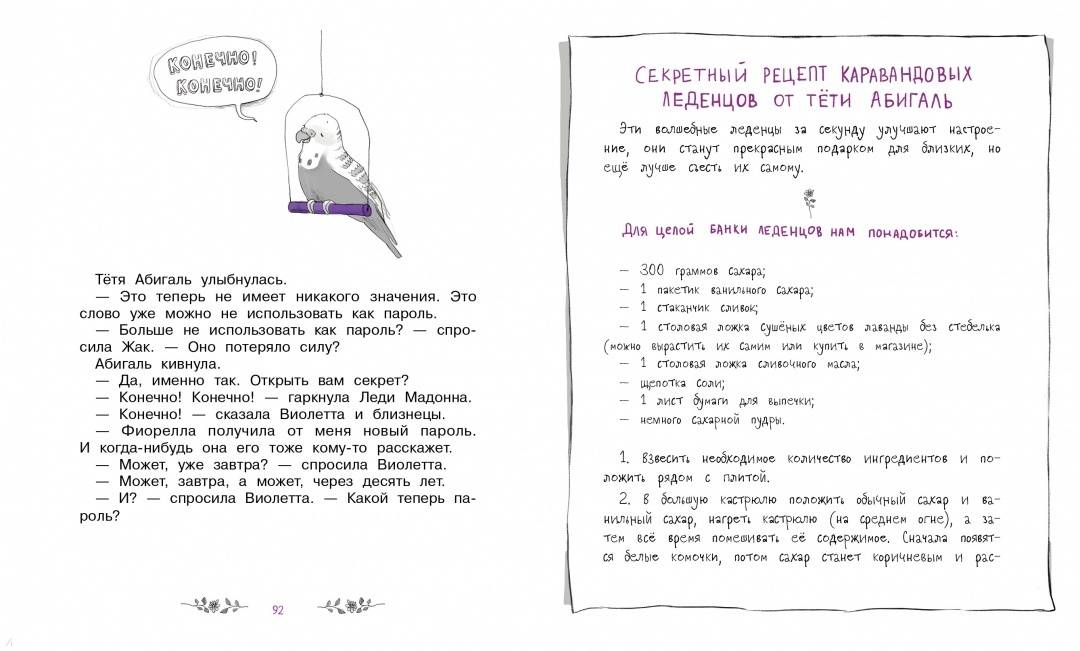 КОНЕЧНО!
КОНЕЧНО!
Тётя Абигаль улыбнулась.
— Это теперь не имеет никакого значения. Это
слово уже можно не использовать как пароль.
— Больше не использовать как пароль? — спро-
сила Жак. — Оно потеряло силу?
Абигаль кивнула.
— Да, именно так. Открыть вам секрет?
— Конечно! Конечно! — гаркнула Леди Мадонна.
— Конечно! — сказала Виолетта и близнецы.
— Фиорелла получила от меня новый пароль.
И когда-нибудь она его тоже кому-то расскажет.
— Может, уже завтра? — спросила Виолетта.
— Может, завтра, а может, через десять лет.
— И? — спросила Виолетта. — Какой теперь па-
роль?
92
СЕКРЕТНЫЙ РЕЦЕПТ КАРАВАНДОВЫХ
ЛЕДЕНЦОВ ОТ ТЁТИ АБИГАЛЬ
Эти волшебные леденцы за секунду улучшают настрое-
ние, они станут прекрасным подарком для близких, но
ещё лучше съесть их самому.
Для целой банки леденцов нам понадобится:
— 300 граммов сахара;
— 1 пакетик ванильного сахара;
— 1 стаканчик сливок;
— 1 столовая ложка сушёных цветов лаванды без стебелька
(можно вырастить их самим или купить в магазине);
— 1 столовая ложка сливочного масла;
— щепотка соли;
— 1 лист бумаги для выпечки;
— немного сахарной пудры.
1. Взвесить необходимое количество ингредиентов и по-
ложить рядом с плитой.
2. В большую кастрюлю положить обычный сахар и ва-
нильный сахар, нагреть кастрюлю (на среднем огне), а за-
тем всё время помешивать её содержимое. Сначала появят-
ся белые комочки, потом сахар станет коричневым и рас-